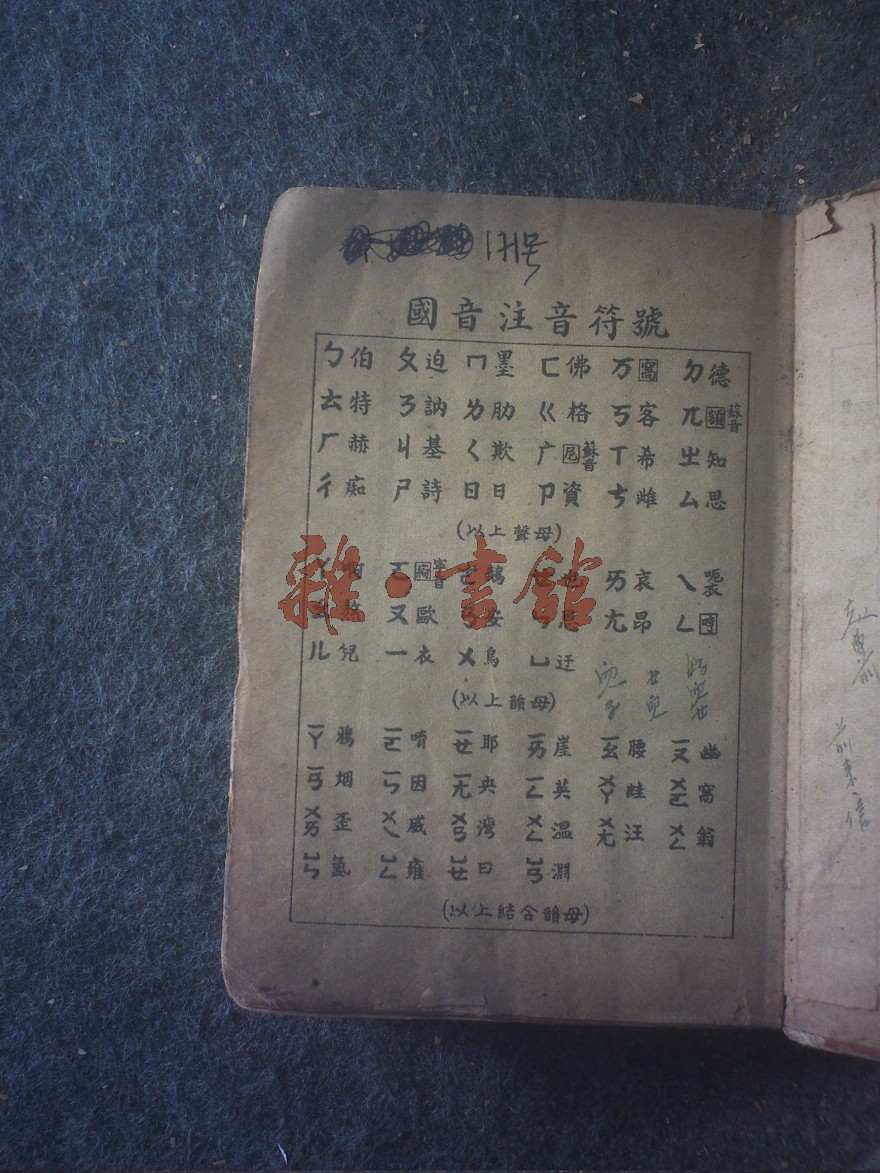 國音注音符號
ㄅ伯 ㄆ迫 ㄇ墨 ㄈ佛 万窩 ㄉ德
ㄊ特 ㄋ訥 ㄌ肋 ㄍ格 ㄎ客 兀額蘇音
ㄏ赫 ㄐ基 ㄑ欺 广尼蘇音 ㄒ希 ㄓ知
ㄔ痴 ㄕ詩 ㄖ日 ㄗ資 ㄘ雌 ㄙ思
(以上聲母)
雜·書館
ㄞ哀 ㄟ
ㄡ歐 ㄤ昂 ㄥ
ㄦ兒 一衣 ㄨ烏 ㄩ迂
(以上韻母)
一ㄚ鴉 一ㄛ唷 一ㄝ耶 一ㄞ崖 一ㄠ腰 一ㄡ幽
一ㄢ烟 一ㄣ因 一ㄤ央 一ㄥ英 ㄨㄚ哇 ㄨㄛ窩
ㄨㄞ歪 ㄨㄟ威 ㄨㄢ灣 ㄨㄣ溫 ㄨㄤ汪 ㄨㄥ翁
ㄩㄣ氳 ㄩㄥ雍 ㄩㄝ曰 ㄩㄢ淵
(以上結合韻母)